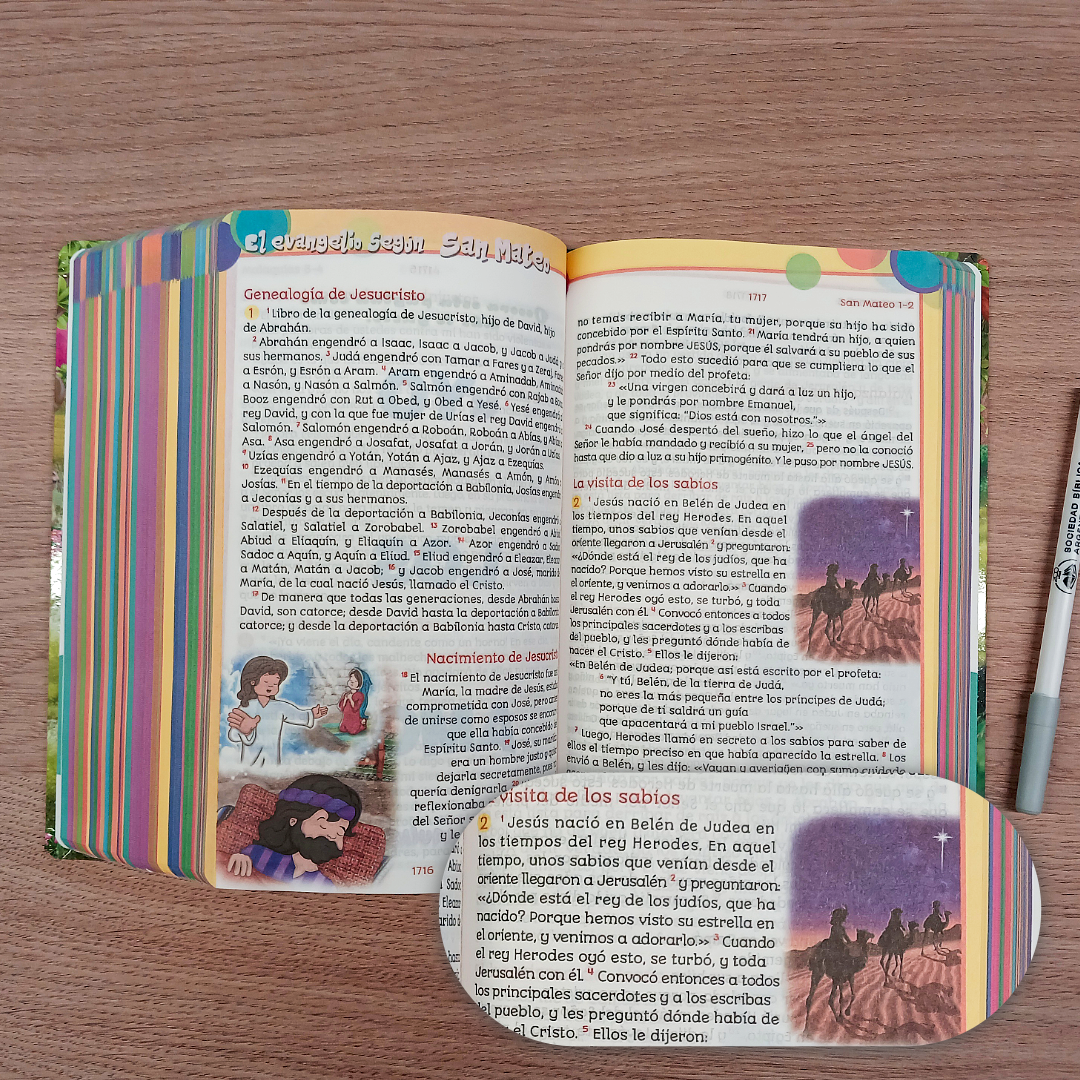 El evangelio según San Mateo
Genealogía de Jesucristo
1 1 Libro de la genealogía de Jesucristo, hijo de David, hijo
de Abrahán.
2 Abrahán engendró a Isaac, Isaac a Jacob, y Jacob a Judá
sus hermanos. 3 Judá engendró con Tamar a Fares y a Zeraj, Fares
a Esrón, y Esrón a Aram. 4 Aram engendró a Aminadab, Aminadab
a Nasón, y Nasón a Salmón. 5 Salmón engendró con Rajab a Booz,
Booz engendró con Rut a Obed, y Obed a Yesé. 6 Yesé engendró
rey David, y con la que fue mujer de Urías el rey David engendró
Salomón. 7 Salomón engendró a Roboán, Roboán a Abías, y Abías
Asa. 8 Asa engendró a Josafat, Josafat a Jorán, y Jorán a Uzías
9 Uzías engendró a Yotán, Yotán a Ajaz, y Ajaz a Ezequías.
10 Ezequías engendró a Manasés, Manasés a Amón, y Amón
Josías. 11 En el tiempo de la deportación a Babilonia, Josías engendró
a Jeconías y a sus hermanos.
12 Después de la deportación a Babilonia, Jeconías engendró
Salatiel, y Salatiel a Zorobabel. 13 Zorobabel engendró a Abiud
Abiud a Eliaquín, y Eliaquín a Azor. 14 Azor engendró a Sadoc
Sadoc a Aquín, y Aquín a Eliud. 15 Eliud engendró a Eleazar, Eleazar
a Matán, Matán a Jacob; 16 y Jacob engendró a José, marido de
María, de la cual nació Jesús, llamado el Cristo.
17 De manera que todas las generaciones, desde Abrahán hasta
David, son catorce; desde David hasta la deportación a Babilonia
catorce; y desde la deportación a Babilonia hasta Cristo, catorce
Nacimiento de Jesucristo
18 El nacimiento de Jesucristo fue
María, la madre de Jesús, estaba
comprometida con José, pero antes
de unirse como esposos se encontró
que ella había concebido
Espíritu Santo. 19 José, su marido
era un hombre justo y
dejarla secretamente, pues
quería denigrarla. 20
reflexionaba
del Señor
y le
1716
1717
San Mateo 1-2
no temas recibir a María, tu mujer, porque su hijo ha sido
concebido por el Espíritu Santo. 21 María tendrá un hijo, a quien
pondrás por nombre JESÚS, porque él salvará a su pueblo de sus
pecados.» 22 Todo esto sucedió para que se cumpliera lo que el
Señor dijo por medio del profeta:
23 «Una virgen concebirá y dará a luz un hijo,
y le pondrás por nombre Emanuel,
que significa: “Dios está con nosotros.”»
24 Cuando José despertó del sueño, hizo lo que el ángel del
Señor le había mandado y recibió a su mujer, 25 pero no la conoció
hasta que dio a luz a su hijo primogénito. Y le puso por nombre JESÚS.
La visita de los sabios
2 1 Jesús nació en Belén de Judea en
los tiempos del rey Herodes. En aquel
tiempo, unos sabios que venían desde el
oriente llegaron a Jerusalén 2 y preguntaron:
«¿Dónde está el rey de los judíos, que ha
nacido? Porque hemos visto su estrella en
el oriente, y venimos a adorarlo.» 3 Cuando
el rey Herodes oyó esto, se turbó, y toda
Jerusalén con él. 4 Convocó entonces a todos
los principales sacerdotes y a los escribas
del pueblo, y les preguntó dónde había de
nacer el Cristo. 5 Ellos le dijeron:
«En Belén de Judea; porque así está escrito por el profeta:
6 “Y tú, Belén, de la tierra de Judá,
no eres la más pequeña entre los príncipes de Judá;
porque de ti saldrá un guía
que apacentará a mi pueblo Israel.”»
7 Luego, Herodes llamó en secreto a los sabios para saber de
ellos el tiempo preciso en que había aparecido la estrella. 8 Los
envió a Belén, y les dijo: «Vayan y averigüen con sumo cuidado
visita de los sabios
2 1 Jesús nació en Belén de Judea en
los tiempos del rey Herodes. En aquel
tiempo, unos sabios que venían desde el
oriente llegaron a Jerusalén 2 y preguntaron:
«¿Dónde está el rey de los judíos, que ha
nacido? Porque hemos visto su estrella en
el oriente, y venimos a adorarlo.» 3 Cuando
el rey Herodes oyó esto, se turbó, y toda
Jerusalén con él. 4 Convocó entonces a todos
los principales sacerdotes y a los escribas
del pueblo, y les preguntó dónde había de
el Cristo. 5 Ellos le dijeron:
SOCIEDAD BÍBLICA